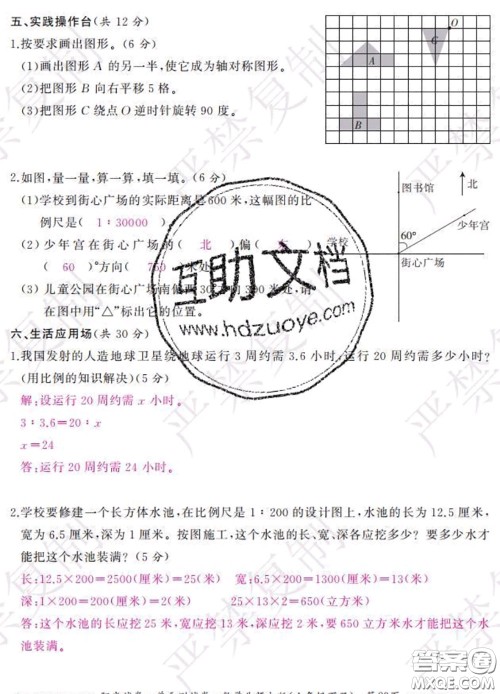 五、实践操作台(共 12 分)
1.按要求画出图形。(6 分)
(1)画出图形 A 的另一半,使它成为轴对称图形。
(2)把图形 B 向右平移 5 格。
(3)把图形 C 绕点 O 逆时针旋转 90 度。
O
C
A
B
2.如图,量一量,算一算,填一填。(6 分)
(1)学校到街心广场的实际距离是600 米,这幅图的比
例尺是( 1∶30000 )
(2)少年宫在街心广场的( 北 )偏(
( 60 )°方向( 750 )米处
(3)儿童公园在街心广场南偏西30°方向300 米处,请
在图中用“△”标出它的位置。
图书馆
北
少年宫
学校
60°
街心广场
六、生活应用场(共 30 分)
1.我国发射的人造地球卫星绕地球运行 3 周约需 3.6 小时,运行 20 周约需多少小时?
(用比例的知识解决)(5 分)
解:设运行 20 周约需 x 小时。
3∶3.6=20∶x
x=24
答:运行 20 周约需 24 小时。
2.学校要修建一个长方体水池,在比例尺是 1∶200 的设计图上,水池的长为 12.5 厘米,
宽为 6.5 厘米,深为 1 厘米。按图施工,这个水池的长、宽、深各应挖多少?要多少水才
能把这个水池装满?(5 分)
长:12.5×200=2500(厘米)=25(米) 宽:6.5×200=1300(厘米)=13(米)
深:1×200=200(厘米)=2(米) 25×13×2=650(立方米)
答:这个水池的长应挖 25 米,宽应挖 13 米,深应挖 2 米,要 650 立方米水才能把这个水
池装满。
严禁复制
互助文档
www.hdzuoye.com